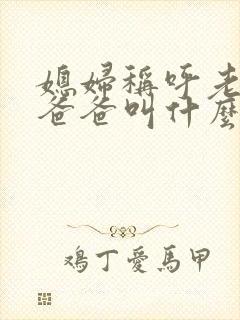 媳婦稱呼老
爸爸叫什麼
鴻丁愛馬甲